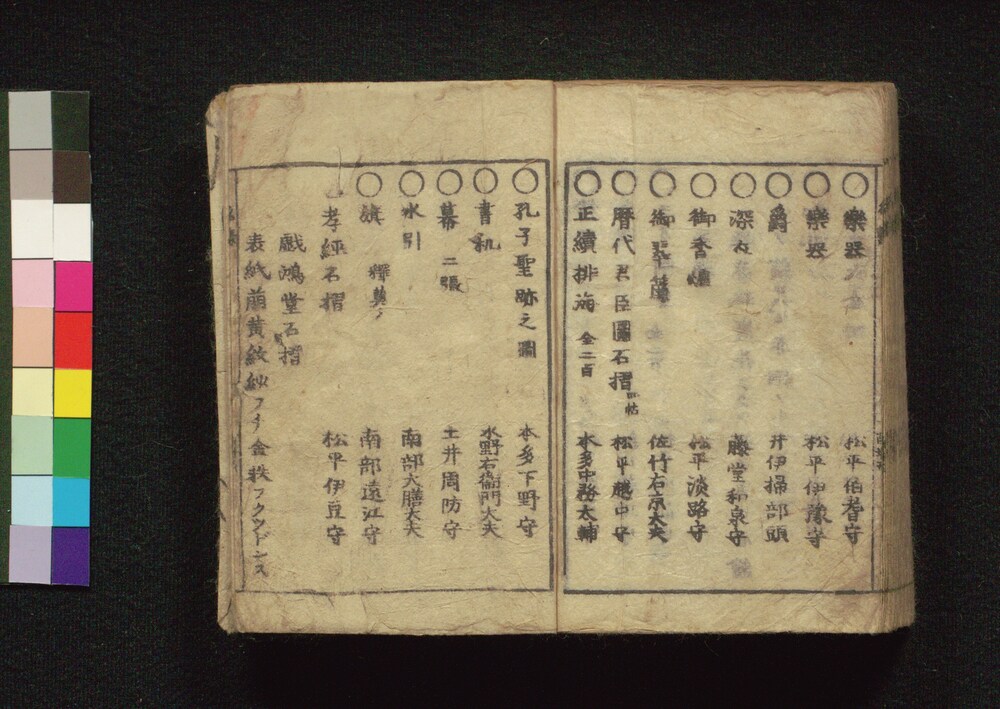 ○樂器 松平伯耆守
○樂器 松平伊豫守
○爵 井伊掃部頭
○深衣 藤堂和泉守
○御香爐 松平淡路守
○御 佐竹右京大夫
○暦代君臣圖石摺 帖 松平越中守
○正續排海 全二百 本多中務大輔
○孔子聖跡之圖 本多下野守
○書机 水野右衞門大夫
○幕 二張 土井周防守
○水引 南部大膳大夫
○旗 釋奠ノ 南部遠江守
孝經石摺 松平伊豆守
戯鴻堂石摺
表紙萠黄紋紗フチ金 フクツドンス